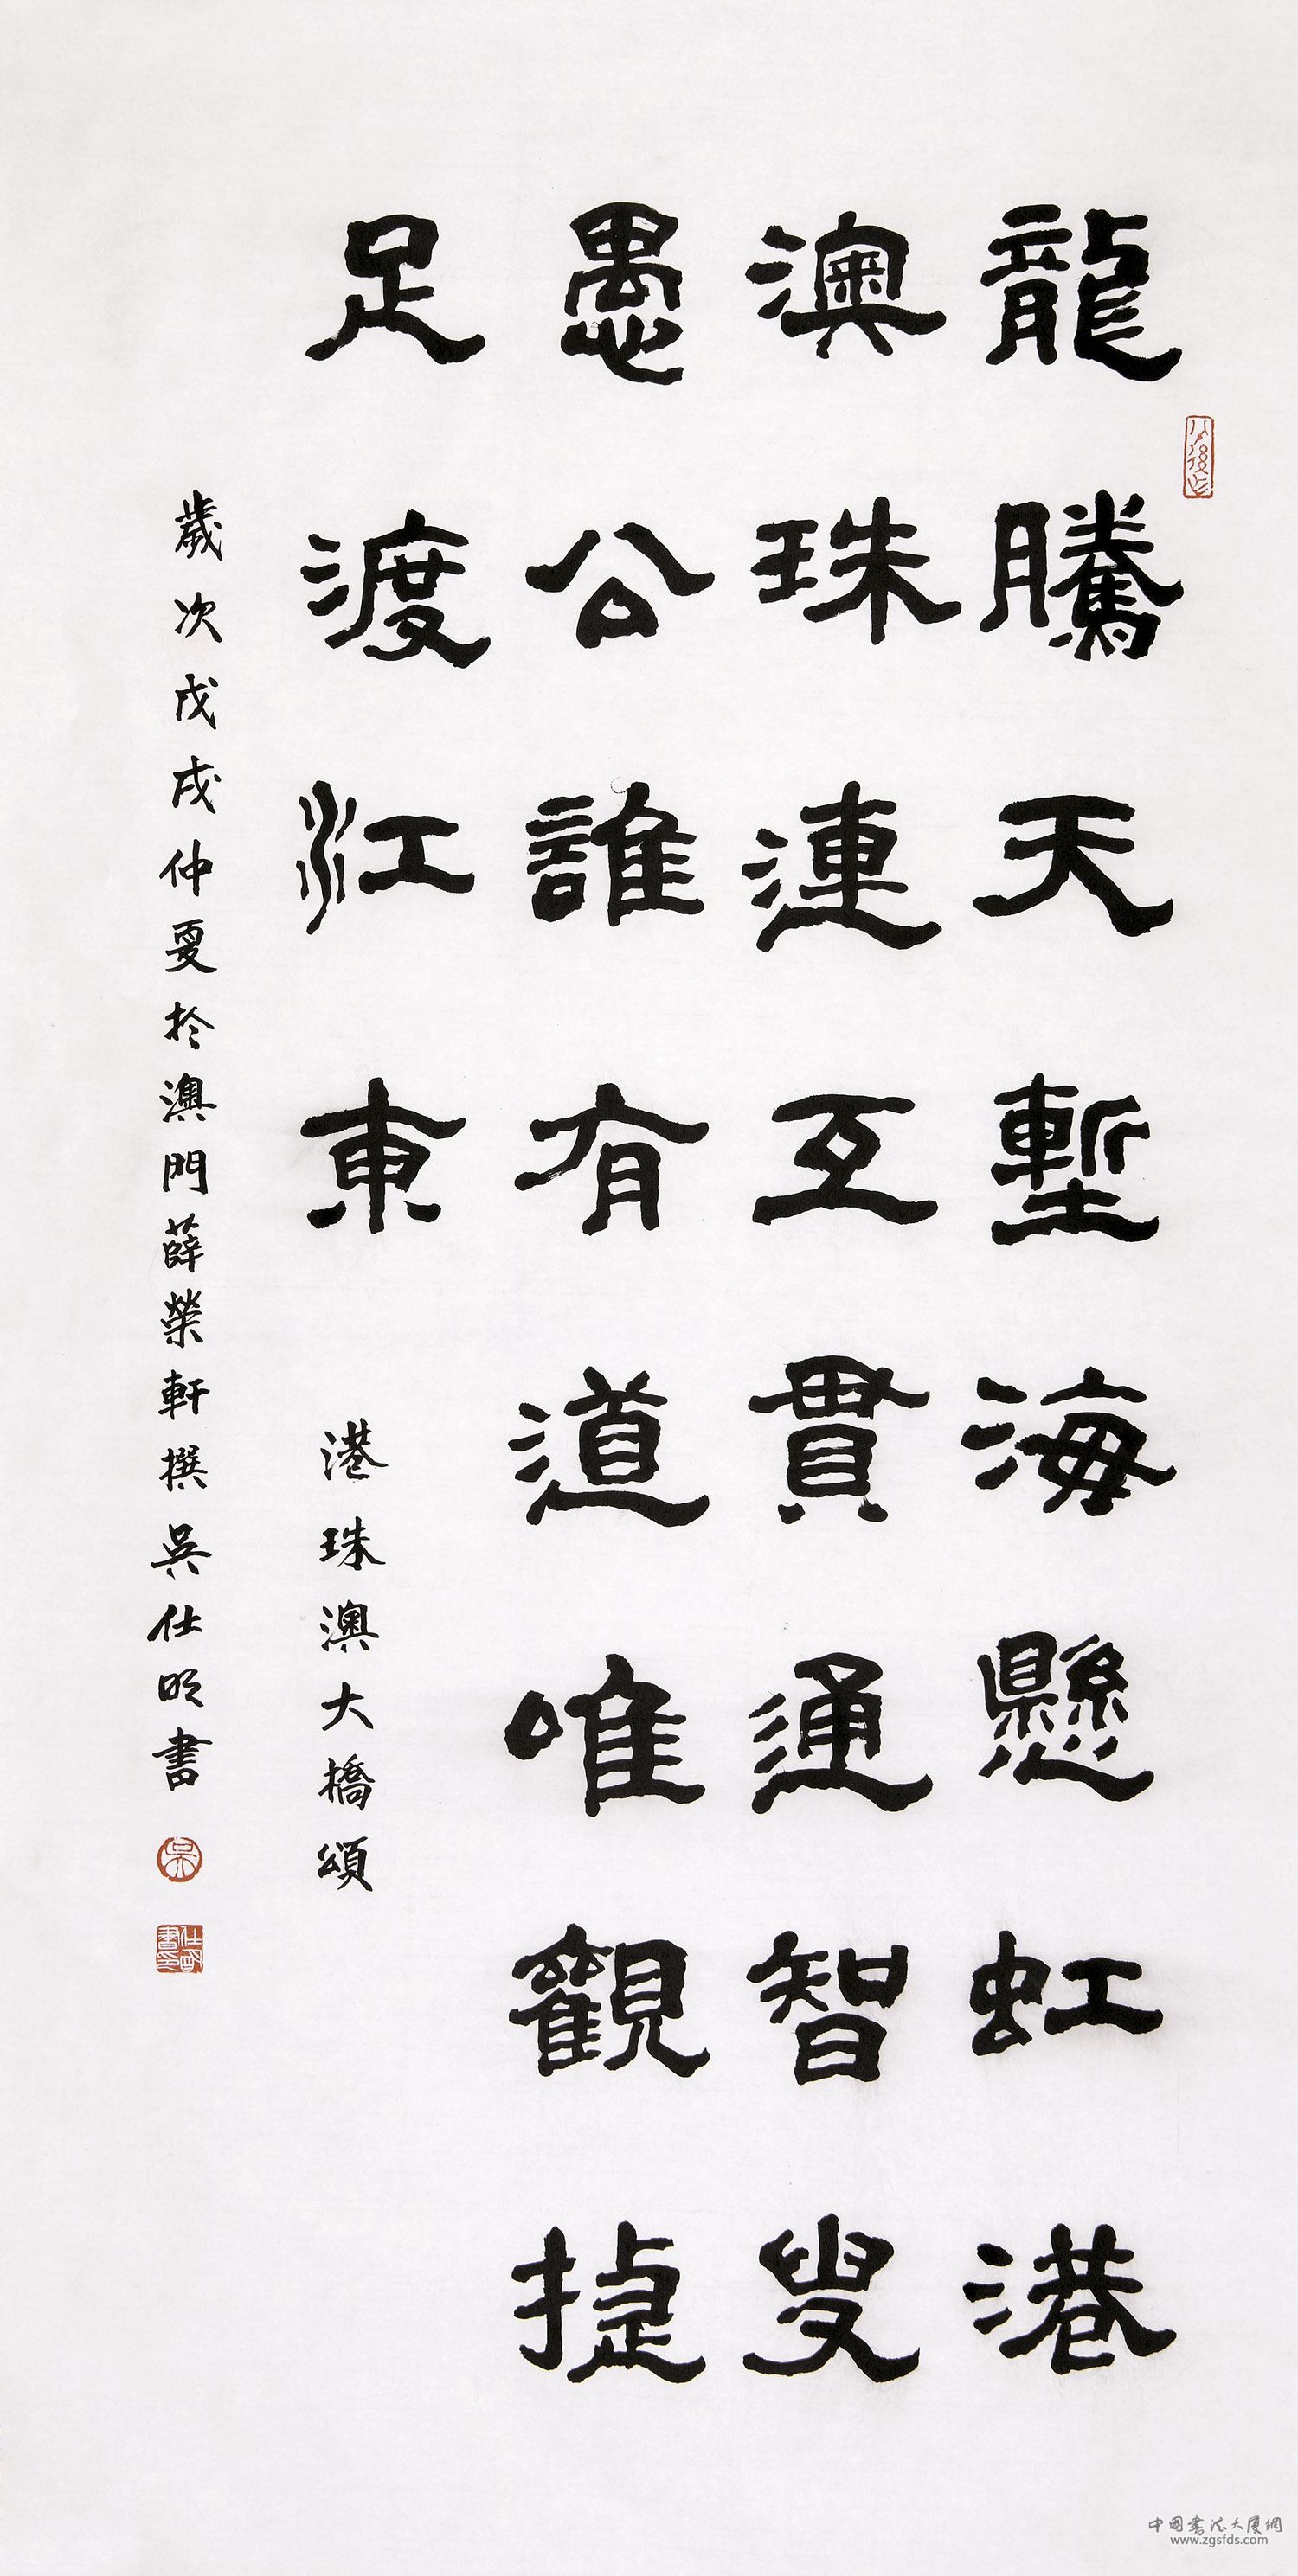 龍騰天塹海懸虹港
澳珠連互貫通智叟
愚公誰有道唯觀捷
足渡江東
港珠澳大橋頌
歲次戊戌仲夏於澳門薛榮軒撰吳仕明書
吳
仕明書印
中国书法大厦網
www.zgsfds.com